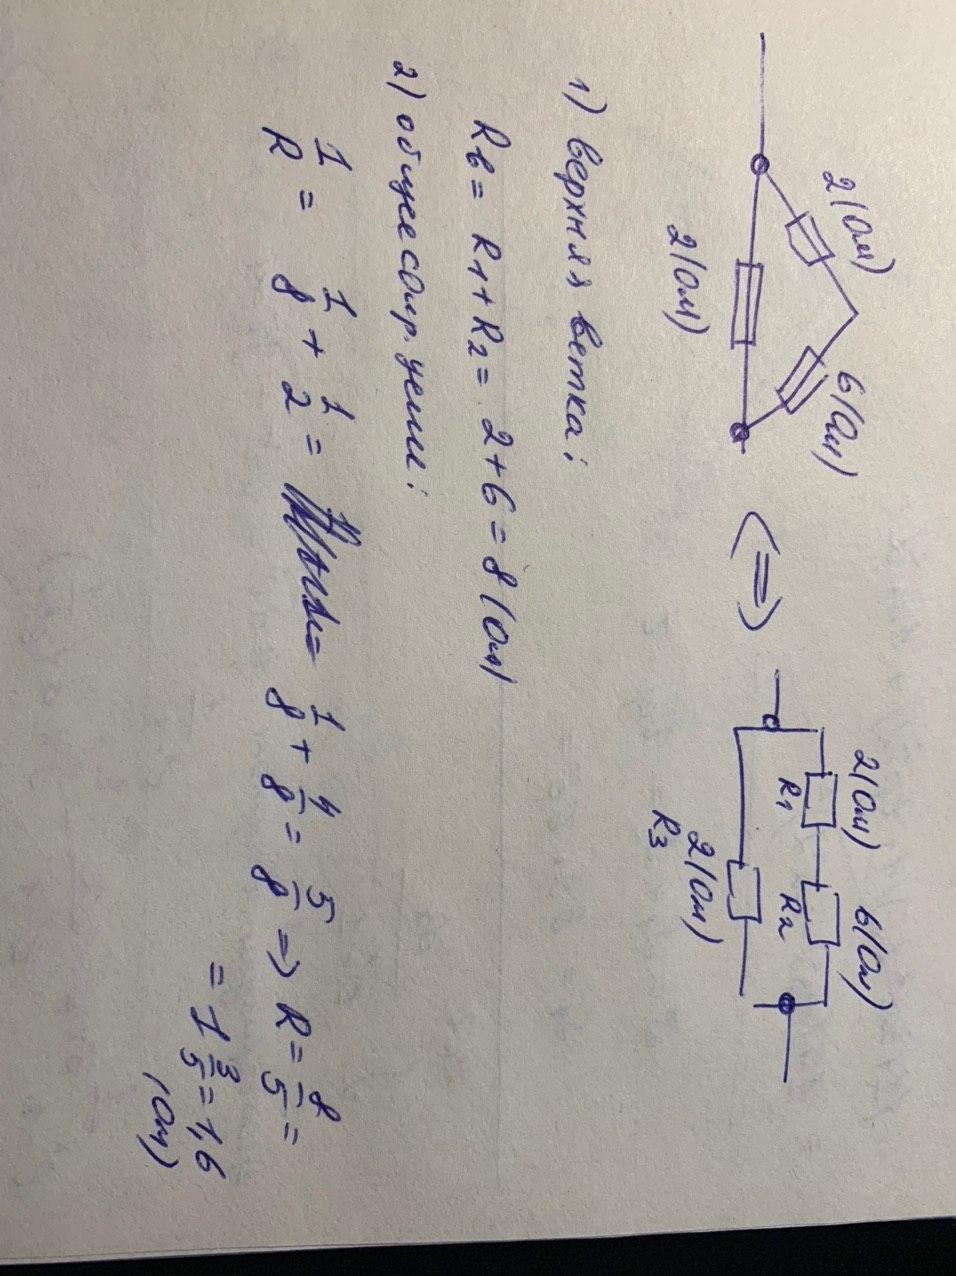 2(Ом) 6(Ом) 2(Ом) 6(Ом)
R1 R2
2(Ом) <=> 2(Ом)
R3
1) верхняя ветка:
Rв = R1 + R2 = 2 + 6 = 8 (Ом)
2) общее сопр. цепи:
1/R = 1/8 + 1/2 = 1/8 + 4/8 = 5/8 => R = 8/5 =
= 1 3/5 = 1,6
(Ом)